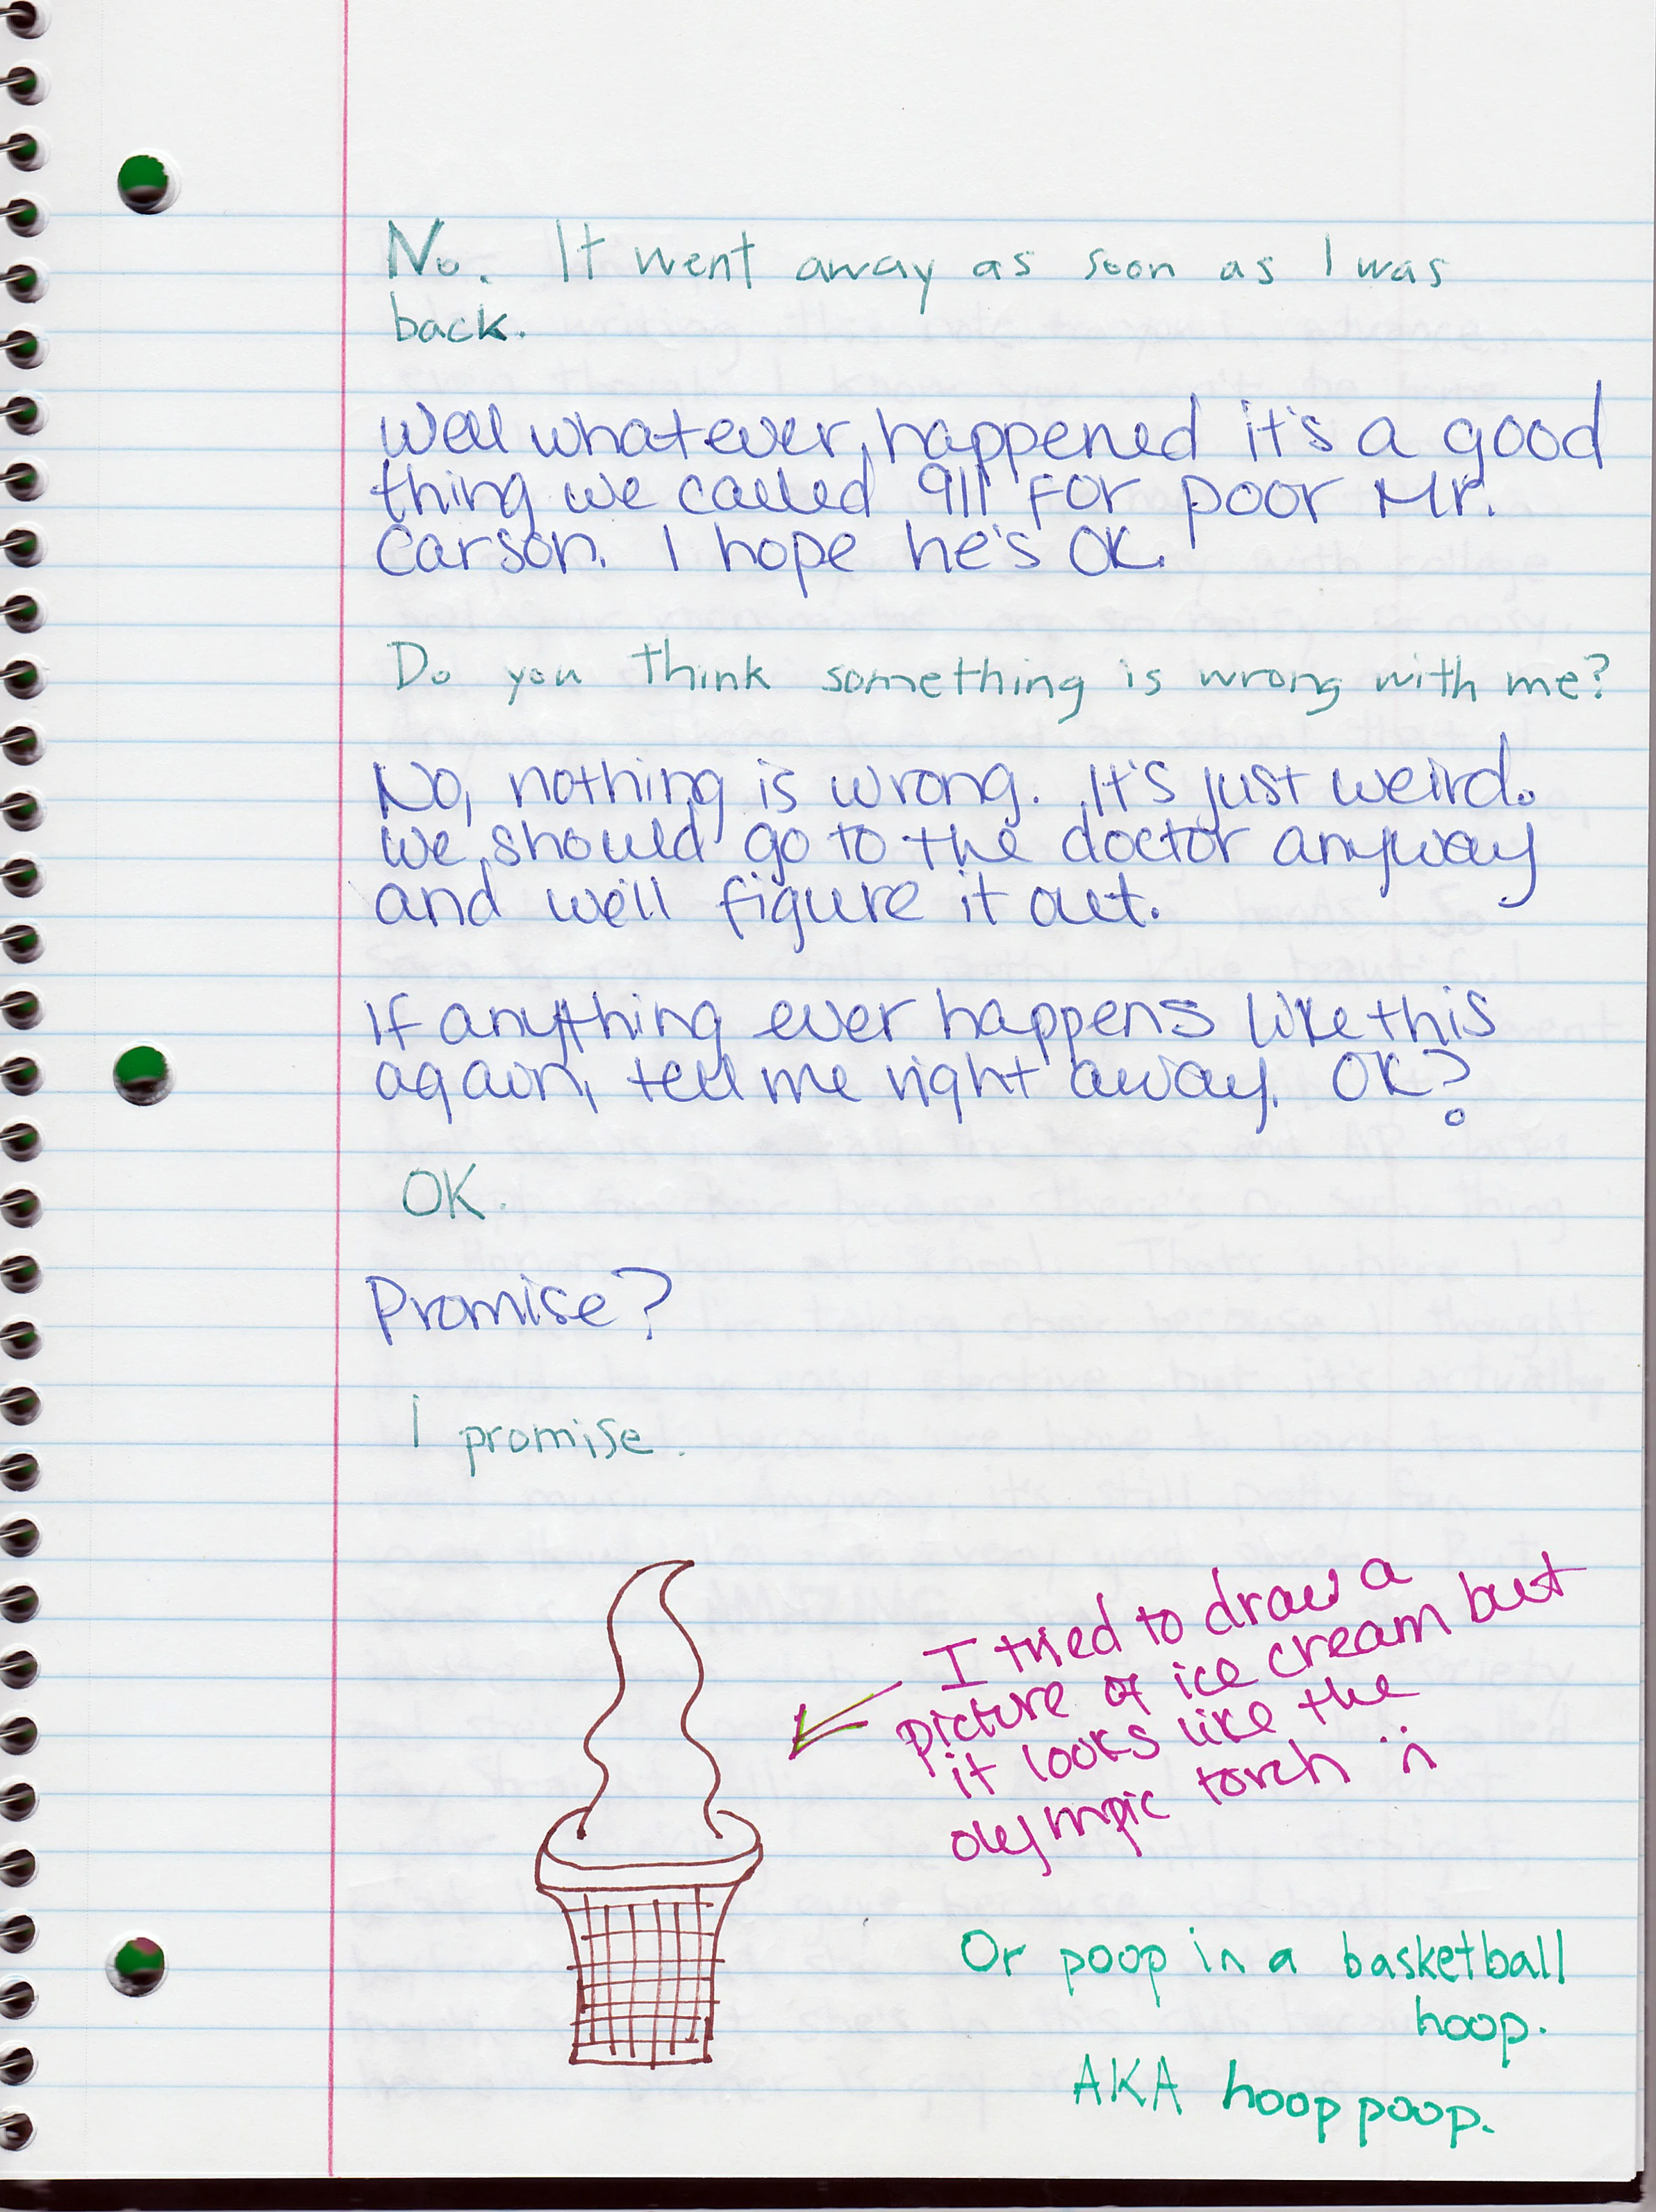 No. It went away as soon as I was
back.
Well whatever happened it's a good
thing we called 911 for poor Mr.
Carson. I hope he's OK.
Do you think something is wrong with me?
No, nothing is wrong. It's just weird.
We should go to the doctor anyway
and we'll figure it out.
If anything ever happens like this
again, tell me right away. OK?
OK.
Promise?
I promise.
I tried to draw a
picture of ice cream but
it looks like the
olympic torch :n
Or poop in a basketball
hoop.
AKA hoop poop.